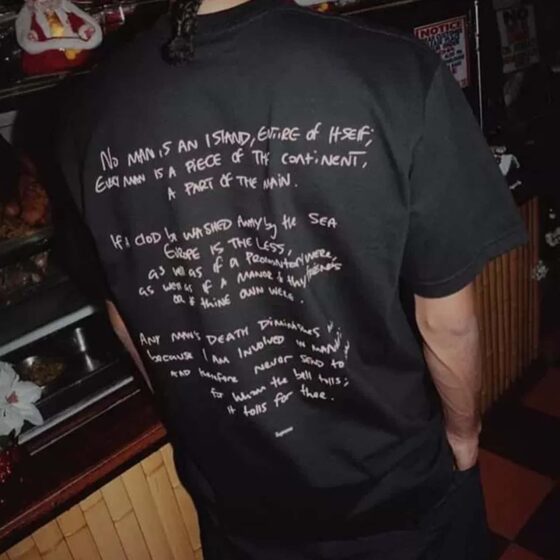 NOTICE
No MAN is AN ISLAND, ENTIRE of ITSELF;
EVERY MAN is A PIECE OF THE CONTINENT,
A PART OF THE MAIN.
If A CLOD be WASHED AWAY by the SEA
EUROPE IS THE LESS,
as well as if a PROMONTORY WERE,
as well as if A MANOR of thy FRIENDS
OR if THINE OWN WERE.
ANY MAN'S DEATH Diminishes
because I AM INVOLVED IN MANK
AND therefore never SEND to
for whom the bell tolls;
it tolls for thee.
Supreme